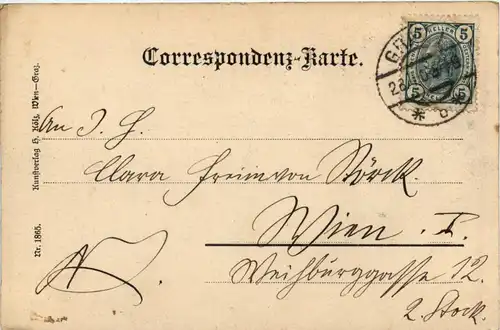 Correspondenz-Karte.
5 HELLER 5
5 5
An I. H.
Clara Freiin von Störck.
Wien. I.
Weihburggasse 12.
2. Stock.
Kunstverlag H. Kölz, Wien—Graz.
Nr. 1865.